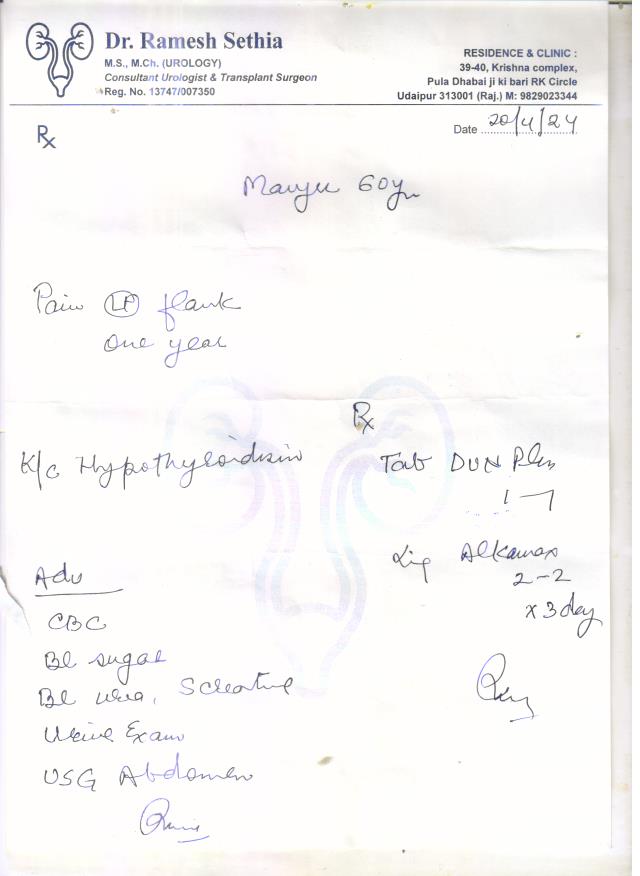 Dr. Ramesh Sethia
M.S., M.Ch. (UROLOGY)
Consultant Urologist & Transplant Surgeon
Reg. No. 13747/007350
RESIDENCE & CLINIC :
39-40, Krishna complex,
Pula Dhabai ji ki bari RK Circle
Udaipur 313001 (Raj.) M: 9829023344
Date 20/4/24
Rx
60y
Pain LT flank
One year
K/c Hypothyroidism
Adv
CBC
Bl sugar
Bl urea, S creatine
Urine Exam
USG Abdomen
Rx
Tab DUN Plus
1-1
Liq Alkamax
2-2
x 3 day